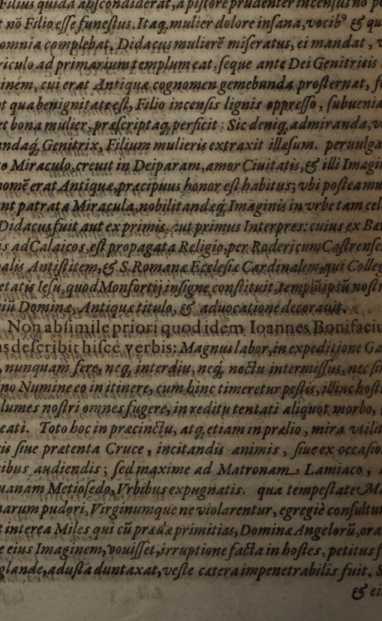 Filius quidā absconditerat, à pistore prudenter incensus no p
t nō Filio esse funestus. Itaq, mulier dolore insana, vocibꝰ & qu
omnia complebat, Didacus mulierē miseratus, ei mandat, v
riculo ad primarium templum eat, seque ante Dei Genitricis
inem, cui erat Antiquæ cognomen gemebunda prosternat, f
t qua benignitate est, Filio incensis lignis oppresso, subuenia
et bona mulier, præscriptaq, perficit: Sic deniq, admiranda, v
ndaq, Genitrix, Filium mulieris extraxit illæsum. peruulga
o Miraculo, creuit in Deiparam, amor Ciuitatis, & illi Imagin
nomē erat Antiqua, præcipuus honor est habitus; vbi posteamu
nt patrata Miracula, nobilitandæq, Imaginis in vrbe tam cel
Didacus fuit aut ex primis, aut primus Interpres: cuius ex Bæ
s ad Calaicos est propagata Religio, per Rodericum Castrensē
alis Antistitem, & S. Romanæ Ecclesiæ Cardinalem, qui Colle
etatis Iesu, quod Monforti insigne constituit, templumq nostr
ium Dominæ, Antiquæ titulo, & aduocatione decorauit.
Non absimile priori quod idem Ioannes Bonifaciu
s describit hisce verbis: Magnus labor, in expeditione Ga
, nunquam fere, neq, interdiu, neq, noctu intermissus, nec si
no Numine eo in itinere, cum hinc timeretur pestis, illinc hosti
lumes nostri omnes fugere, in reditu tentati aliquot morbo,
eati. Toto hoc in præcinctu, atq, etiam in prælio, mira vtilit
is siue prætenta Cruce, incitandis animis, siue ex occasio
ibus audiendis; sed maxime ad Matronam Lamiaco,
uanam Metiosedo, Vrbibus expugnatis. qua tempestate Ma
narum pudori, Virginumque ne violarentur, egregiè consultum
t interea Miles qui cū prædæ primitias, Dominæ Angelorū, ora
e eius Imaginem, vouisset, irruptione facta in hostes, petitus f
glande, adusta duntaxat, veste cætera impenetrabilis fuit. S
& ei